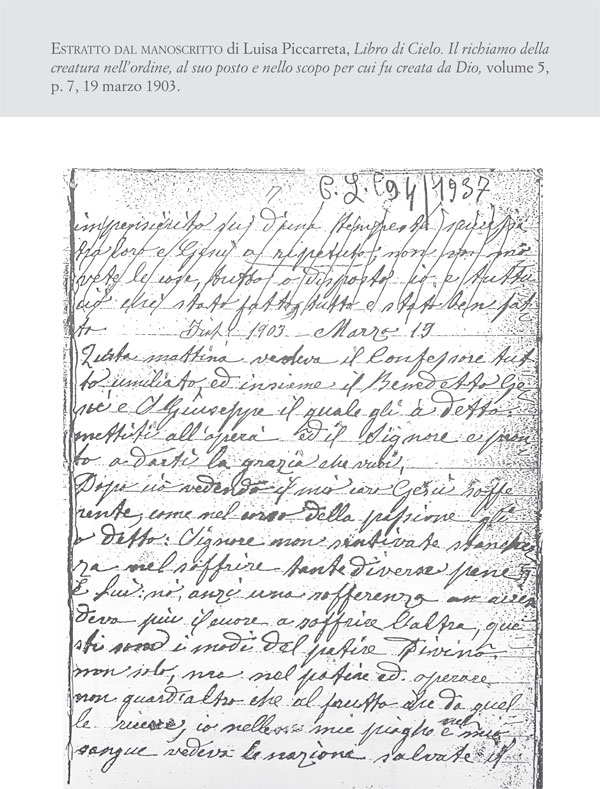 ESTRATTO DAL MANOSCRITTO di Luisa Piccarreta, Libro di Cielo. Il richiamo della
creatura nell'ordine, al suo posto e nello scopo per cui fu creata da Dio, volume 5,
p. 7, 19 marzo 1903.
7
94/1937
tra loro e Gesù a ripetuto, non
vete le cose, tutto o disposto io e tutto
ciò che è stato fatto, tutto è stato ben fat-
to Fiat 1903 – Marzo 19
Questa mattina vedeva il Confessore tut-
to umiliato, ed insieme il Benedetto Ge-
sù e S Giuseppe il quale gli à detto:
mettiti all'opera ed il Signore e pron
to a darti la grazia che vuoi,
Dopo ciò vedendo il mio caro Gesù soffe
rente, come nel corso della passione gli
o detto: Signore non sentivate stanchez
za nel soffrire tante diverse pene?
E Lui: nò, anzi una sofferenza an accen
deva più il cuore a soffrire l'altra, que
sti sono i modi del patire Divino.
non solo, ma nel patire ed operare
non guard'altro che al frutto che da quel
le riceve, io nelle mie piaghe e nel mio
sangue vedeva le nazione salvate il